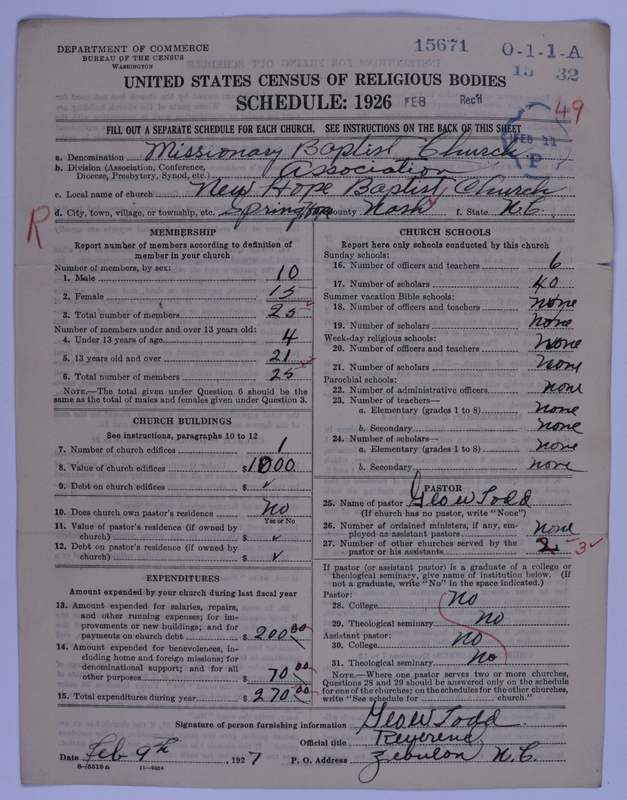 DEPARTMENT OF COMMERCE
BUREAU OF THE CENSUS
WASHINGTON
15671 O-1-1-A
15 32
UNITED STATES CENSUS OF RELIGIOUS BODIES
SCHEDULE: 1926 FEB Rec'd
49
FEB 11
P
FILL OUT A SEPARATE SCHEDULE FOR EACH CHURCH. SEE INSTRUCTIONS ON THE BACK OF THIS SHEET
a. Denomination Missionary Baptist Church
b. Division (Association, Conference, Diocese, Presbytery, Synod, etc.) Association
c. Local name of church New Hope Baptist Church
d. City, town, village, or township, etc. Springhope County Nash f. State N.C.
R
MEMBERSHIP
Report number of members according to definition of
member in your church
Number of members, by sex:
1. Male 10
2. Female 15
3. Total number of members 25
Number of members under and over 13 years old:
4. Under 13 years of age 4
5. 13 years old and over 21
6. Total number of members 25
NOTE.—The total given under Question 6 should be the
same as the total of males and females given under Question 3.
CHURCH BUILDINGS
See instructions, paragraphs 10 to 12
7. Number of church edifices 1
8. Value of church edifices $1000
9. Debt on church edifices $ ✓
10. Does church own pastor's residence No
Yes or No
11. Value of pastor's residence (if owned by
church) $ ✓
12. Debt on pastor's residence (if owned by
church) $ ✓
EXPENDITURES
Amount expended by your church during last fiscal year
13. Amount expended for salaries, repairs,
and other running expenses; for im-
provements or new buildings; and for
payments on church debt $ 200 00
14. Amount expended for benevolences, in-
cluding home and foreign missions; for
denominational support; and for all
other purposes 70 00
15. Total expenditures during year $ 270 00
CHURCH SCHOOLS
Report here only schools conducted by this church
Sunday schools:
16. Number of officers and teachers 6
17. Number of scholars 40
Summer vacation Bible schools:
18. Number of officers and teachers none
19. Number of scholars none
Week-day religious schools:
20. Number of officers and teachers none
21. Number of scholars none
Parochial schools:
22. Number of administrative officers none
23. Number of teachers—
a. Elementary (grades 1 to 8) none
b. Secondary none
24. Number of scholars—
a. Elementary (grades 1 to 8) none
b. Secondary none
PASTOR
25. Name of pastor Geo W Todd
(If church has no pastor, write "None")
26. Number of ordained ministers, if any, em-
ployed as assistant pastors none
27. Number of other churches served by the
pastor or his assistants 2 3✓
If pastor (or assistant pastor) is a graduate of a college or
theological seminary, give name of institution below. (If
not a graduate, write "No" in the space indicated.)
Pastor:
28. College No
29. Theological seminary No
Assistant pastor:
30. College No
31. Theological seminary No
NOTE.—Where one pastor serves two or more churches,
Questions 28 and 29 should be answered only on the schedule
for one of the churches; on the schedules for the other churches,
write "See schedule for church."
Signature of person furnishing information Geo W Todd
Official title Reverend
Date Feb 9th, 1927 P. O. Address Zebulon N.C.
8-5318a 11-9264